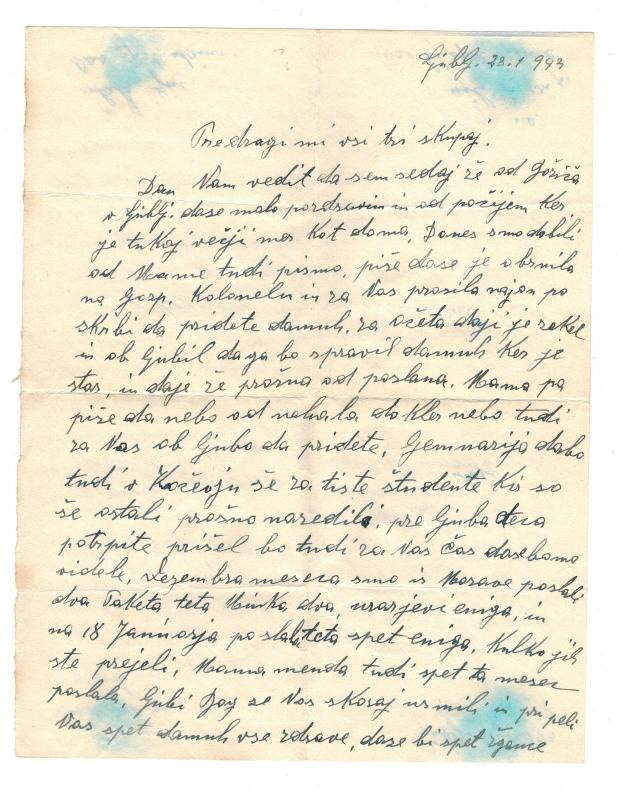 Ljublj. 23.1 943
Predragi mi vsi tri skupaj.
Dan Vam vedit da sem sedaj že od Božiča
v Ljublj. dase malo pozdravim in od počijem ker
je tukaj večji mer kot doma, Danes smo dobili
od Mame tudi pismo, piše dase je obrnila
na Gosp. Kolonelu in za Vas prosila naj on po
skrbi da pridete damuh, za očeta daji je rekel
in ob ljubil da ga bo spravil damuh ker je
star, in daje že prošna od poslana. Mama pa
piše da nebo od nehala dokler nebo tudi
za Vas ob ljubo da pridete, Gemnazija dabo
tudi v Kočevju še za tiste študente ki so
še ostali prošno naredili, pre ljuba teta
potrpite prišel bo tudi za Vas čas dasebomo
videle, Dezembra meseca smo iz Morave poslali
dva Paketa teta Minka dva, eniga, in
na 18 Januarja poslala teta spet eniga, Kulko jih
ste prejeli, Mama menda tudi spet ta mesec
poslala, Ljubi Bog se Vas skoraj usmili in pri peli
Vas spet damuh vse zdrave, dase bi spet žgance